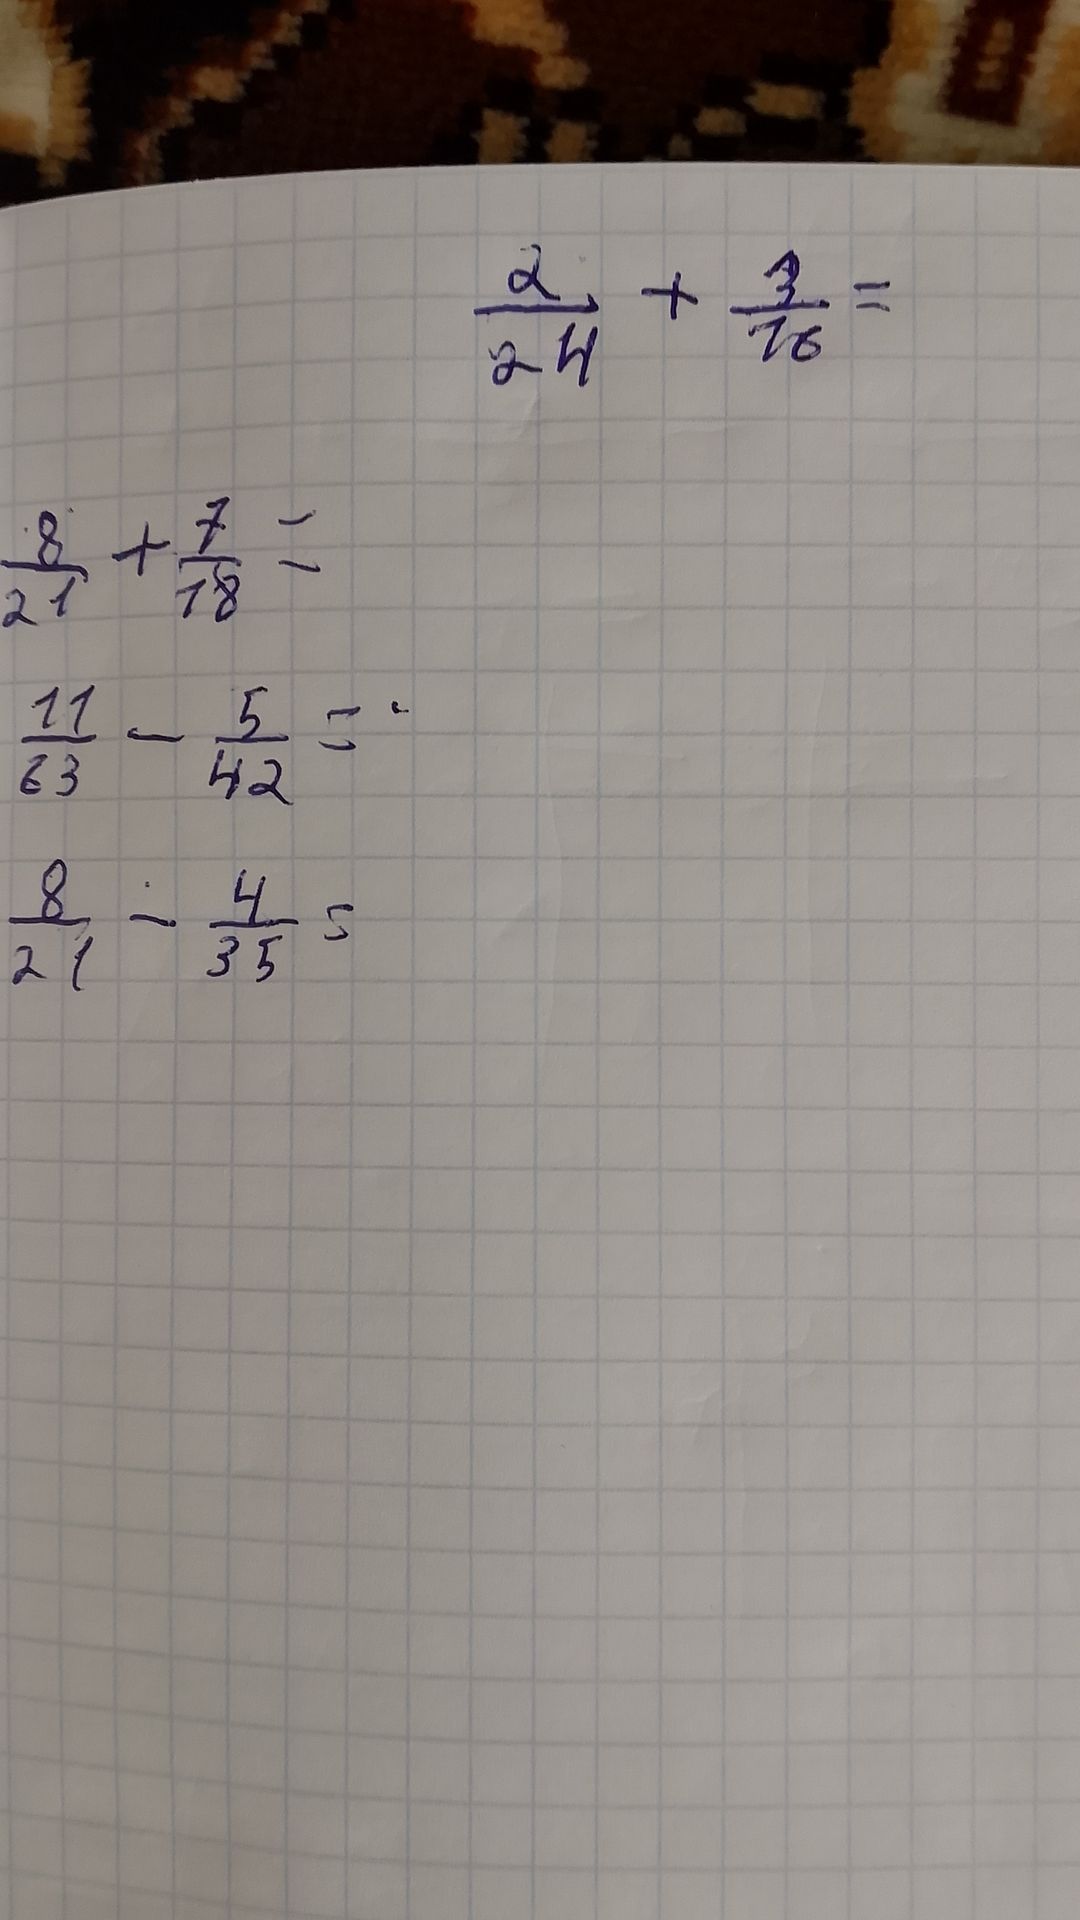 2/24 + 3/16 =
8/21 + 7/18 =
11/63 - 5/42 =
8/21 - 4/35 =